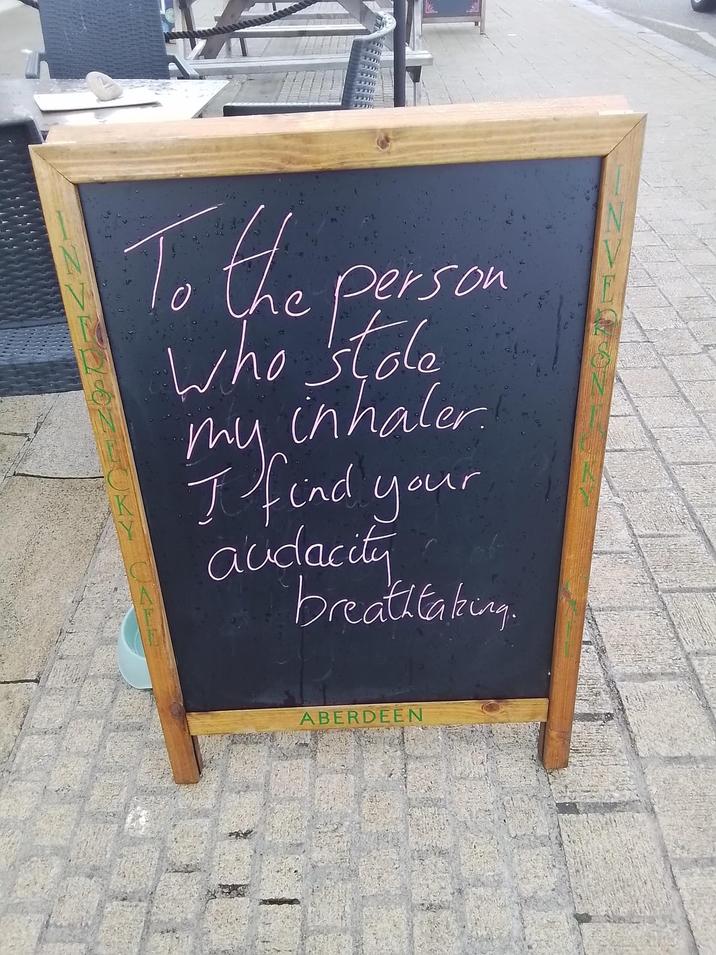 To the person
who stole
my inhaler.
I find your
audacity
breathtaking.
INVERONECKY CAFE
INVERONECKY CAFE
ABERDEEN